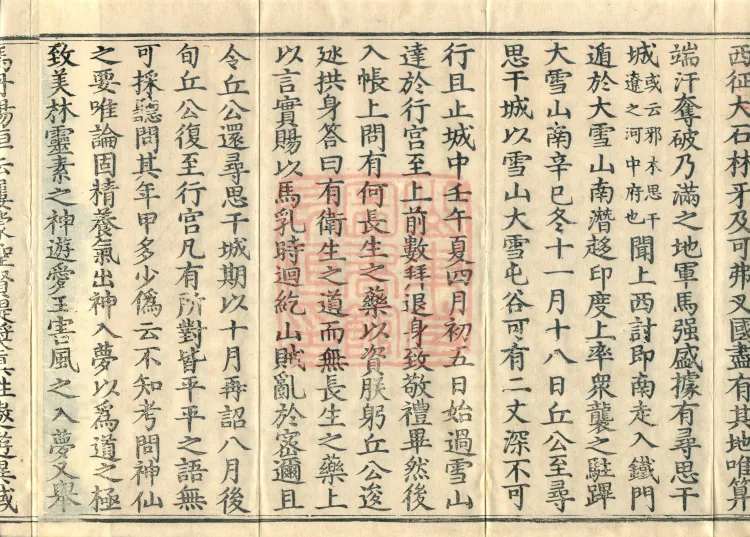 西征大石林牙及可弗叉國盡有其地唯算
端汗奪破乃滿之地軍馬强盛據有尋思干
城或云邪米思干遼之河中府也聞上西討即南走入鐵門
遁於大雪山南潛趍印度上率衆襲之駐蹕
大雪山南辛巳冬十一月十八日丘公至尋
思干城以雪山大雪屯谷可有二丈深不可
行且止城中壬午夏四月初五日始過雪山
達於行宫至上前數拜退身致敬禮畢然後
入帳上問有何長生之藥以資朕躬丘公逡
廵拱身答曰有衛生之道而無長生之藥上
以言實賜以馬乳時迴紇山賊亂於密邇且
令丘公還尋思干城期以十月再詔八月後
旬丘公復至行宫凡有所對皆平平之語無
可採聽問其年甲多少僞云不知考問神仙
之要唯論固精養氣出神入夢以爲道之極
致美林靈素之神遊愛王害風之入夢又舉